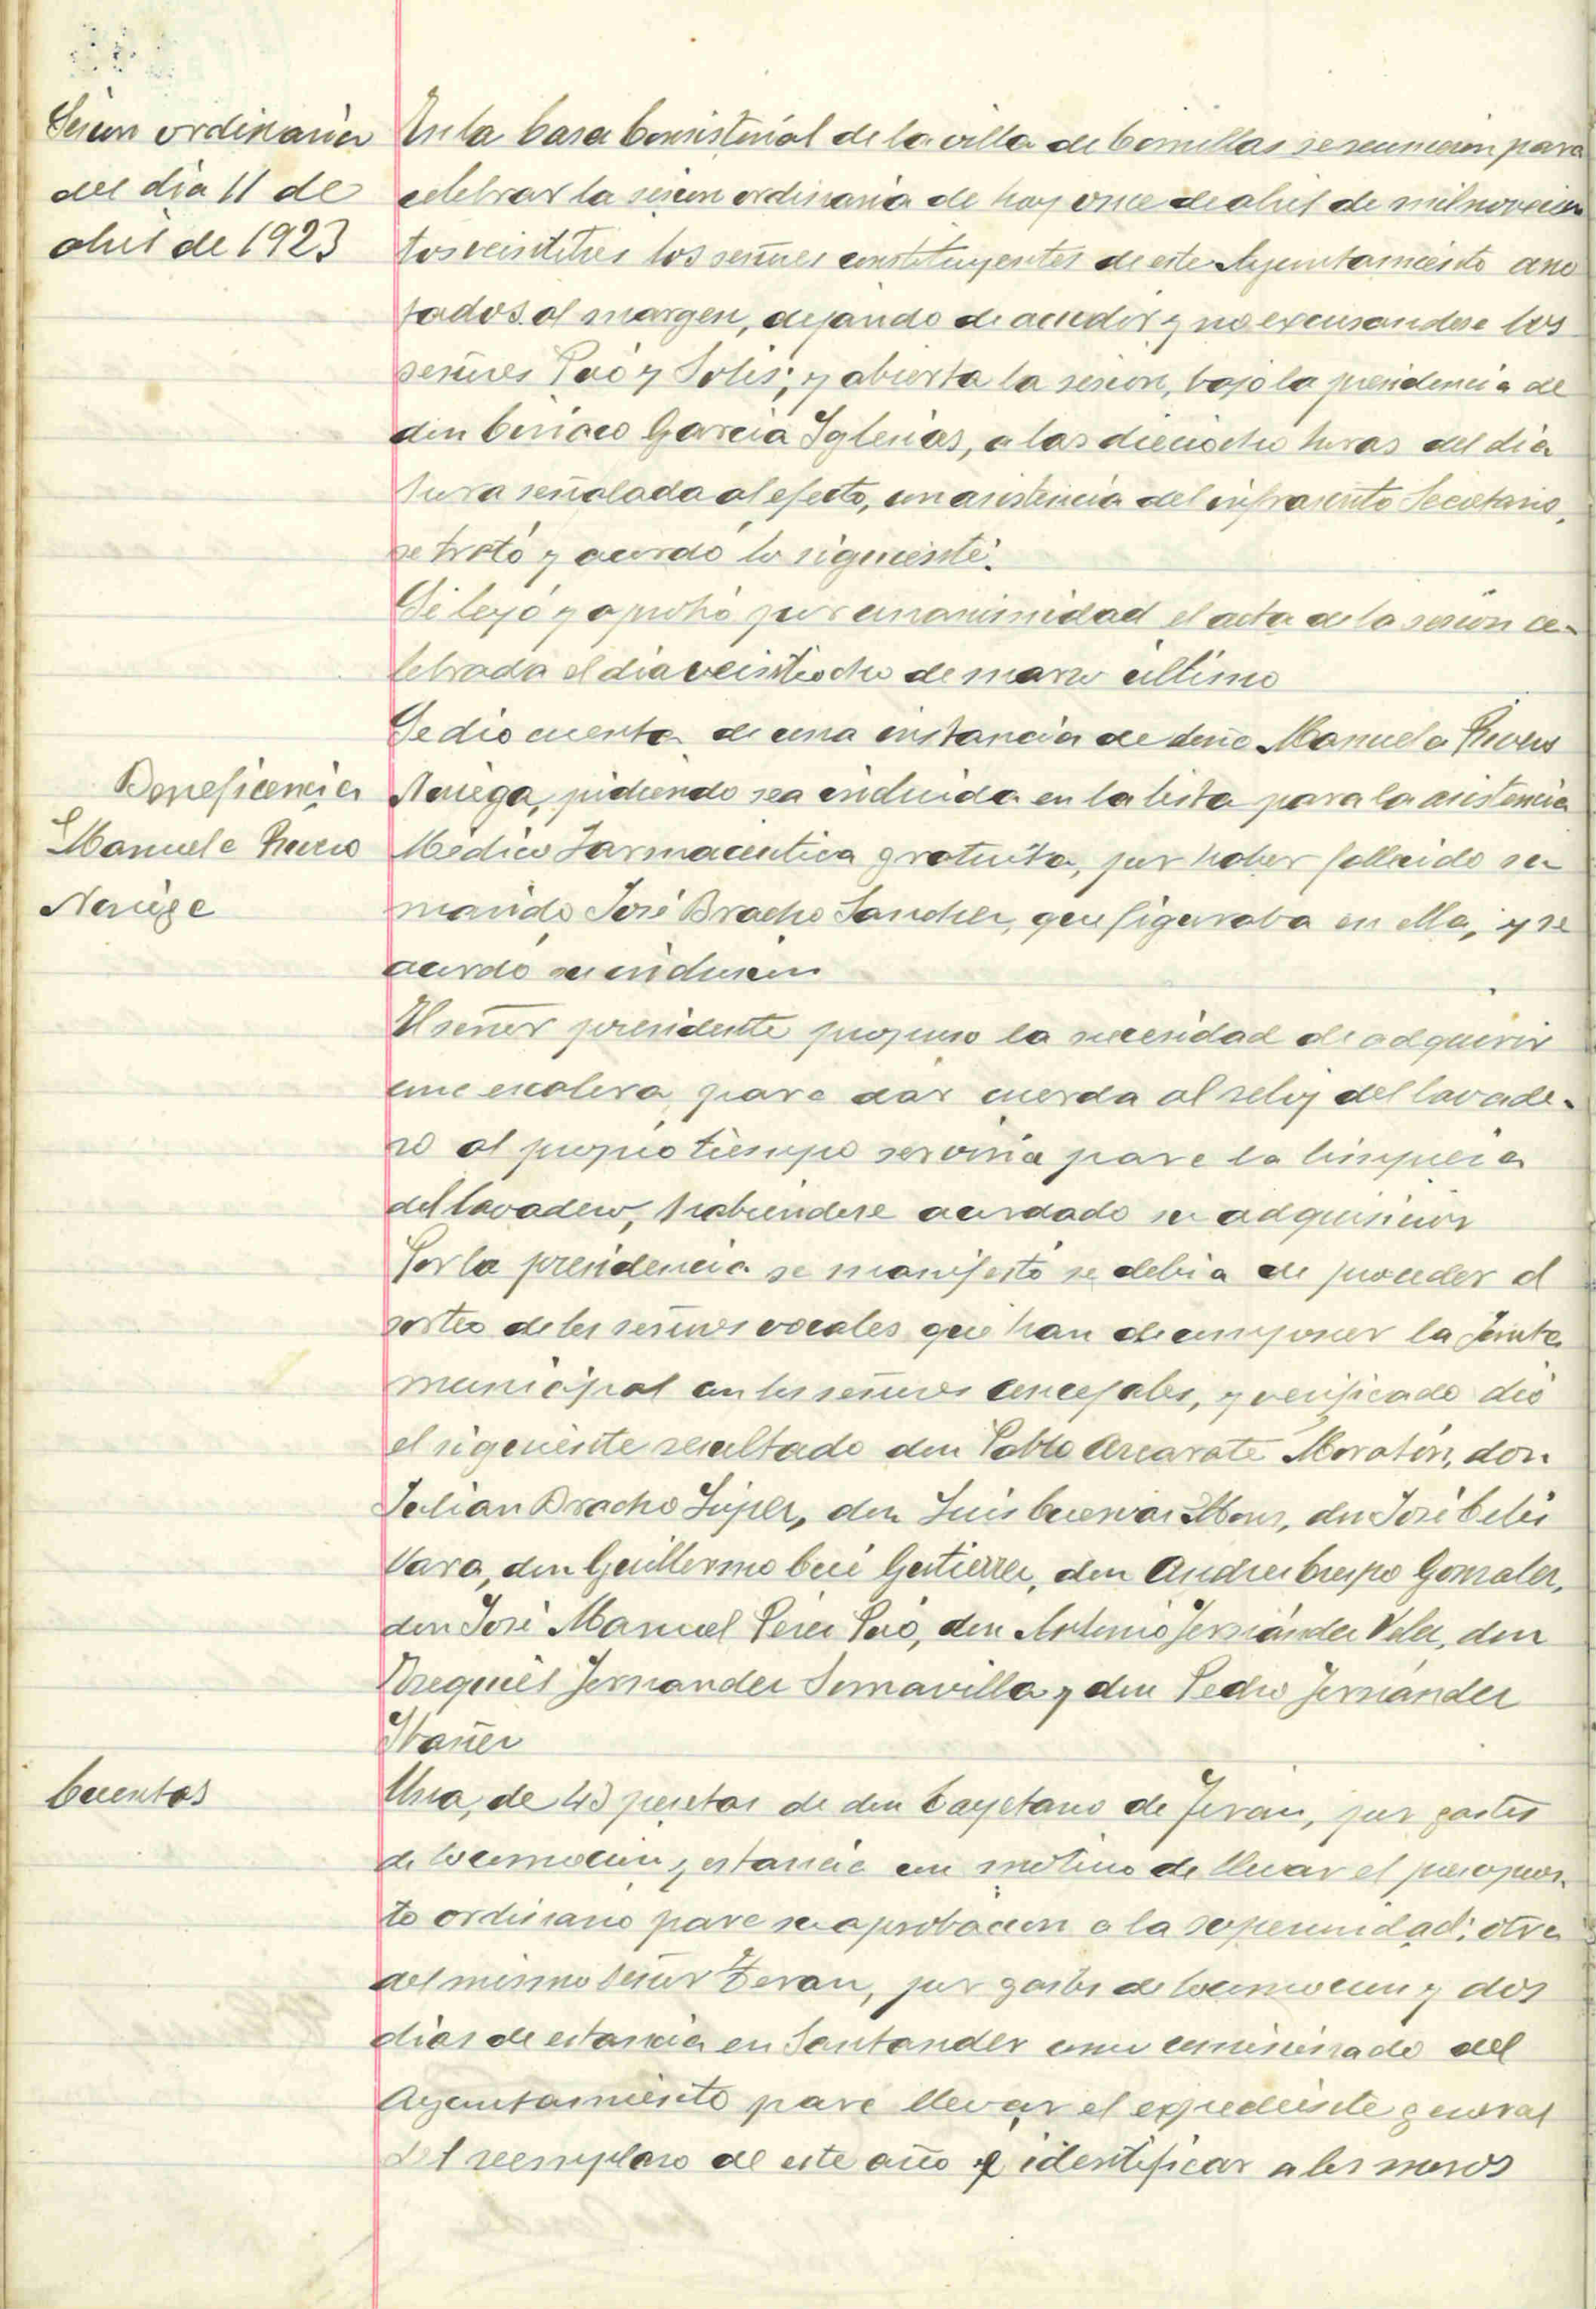 Sesion ordinaria
del dia 11 de
abril de 1923
En la Casa Consistorial de la villa de Comillas se reunieron para
celebrar la sesion ordinaria de hoy once de abril de mil novecien
tos veintitres los señores constituyentes de este Ayuntamiento ano
tados al margen, dejando de acudir y no excusandose los
señores Pío y Solis; y abierta la sesion, bajo la presidencia de
don Ciriaco García Iglesias, a las dieciocho horas del dia
hora señalada al efecto, con asistencia del infrascrito Secretario,
se trató y acordó lo siguiente:
Se leyó y aprobó por unanimidad el acta de la sesion ce-
lebrada el dia veintiocho de marzo ultimo
Beneficencia
Manuela
Noriega
Se dio cuenta de una instancia de doña Manuela
Noriega, pidiendo sea incluida en la lista para la asistencia
Médico Farmaceutica gratuita, por haber fallecido su
marido José Bracho Sanchez, que figuraba en ella, y se
acordó su inclusion
El señor presidente propuso la necesidad de adquirir
una escalera para dar cuerda al reloj del lavade-
ro al propio tiempo serviria para la limpieza
del lavadero, habiendose acordado su adquisicion
Por la presidencia se manifestó se debia de proceder al
sorteo de los señores vocales que han de componer la Junta
municipal con los señores concejales, y verificado dió
el siguiente resultado don Pablo Azcarate Moratón, don
Julian Bracho López, don Luis Cuevas Mons, don José Celis
Vara, don Guillermo Cué Gutierrez, don Andres Crespo Gonzalez,
don José Manuel Perez Pío, don Antonio Fernández Velez, don
Ezequiel Fernandez Somavilla y don Pedro Fernández
Ibañez
Cuentas
Una, de 43 pesetas de don Cayetano de Teran, por gastos
de locomocion y estancia con motivo de llevar el presupues-
to ordinario para su aprobacion a la superioridad; otra
del mismo señor Teran, por gastos de locomocion y dos
dias de estancia en Santander como comisionado del
Ayuntamiento para llevar el expediente general
del reemplazo de este año e identificar a los mozos